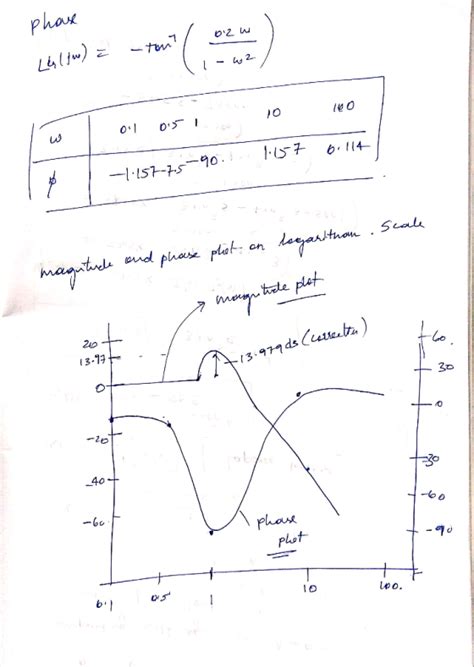 phase
∠G(jw) = -tan⁻¹ ( 0.2 w / 1 - w² )
w | 0.1 0.5 1 10 100
ϕ | -1.157 -7.5 -90. 1.157 0.114
magnitude and phase plot on logarithm. Scale
magnitude plot
20
13.97
13.979 ds (correction)
0
-20
-40
-60
60
30
0
-30
-60
-90
phase plot
0.1 0.5 1 10 100.